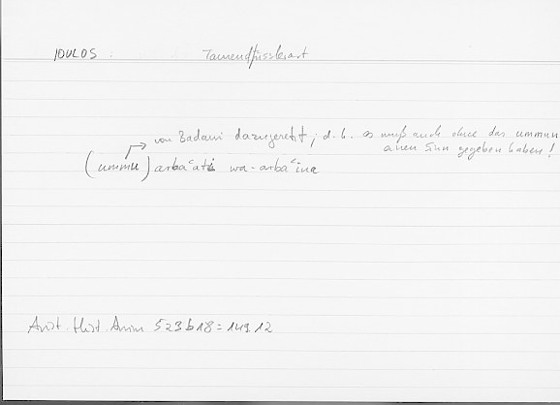 IOULOS : Tausendfüsslerart
von Badawi dazugesetzt; d.h. es muß auch ohne das ummu
einen Sinn gegeben haben!
(ummu) arbaʿati wa-arbaʿīna
Arist. Hist. Anim 523b18 = 149.12